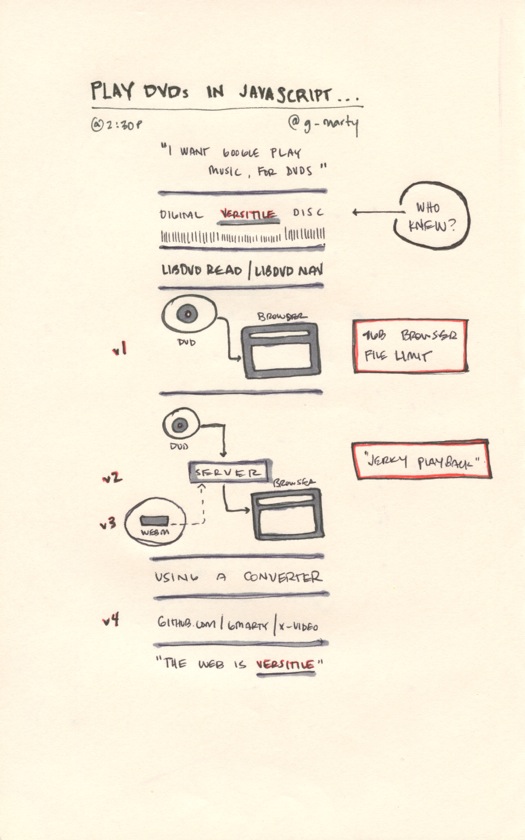 PLAY DVDs IN JAVASCRIPT...
@2:30P
@g-marty
"I WANT GOOGLE PLAY
MUSIC, FOR DVDS"
DIGITAL VERSITILE DISC
WHO
KNEW?
LIBDVD READ / LIBDVD NAV
DVD
BROWSER
v1
BROWSER
FILE LIMIT
DVD
SERVER
BROWSER
"JERKY PLAYBACK"
v2
v3
WEBM
USING A CONVERTER
v4
GITHUB.COM/GMARTY/X-VIDEO
"THE WEB IS VERSITILE"